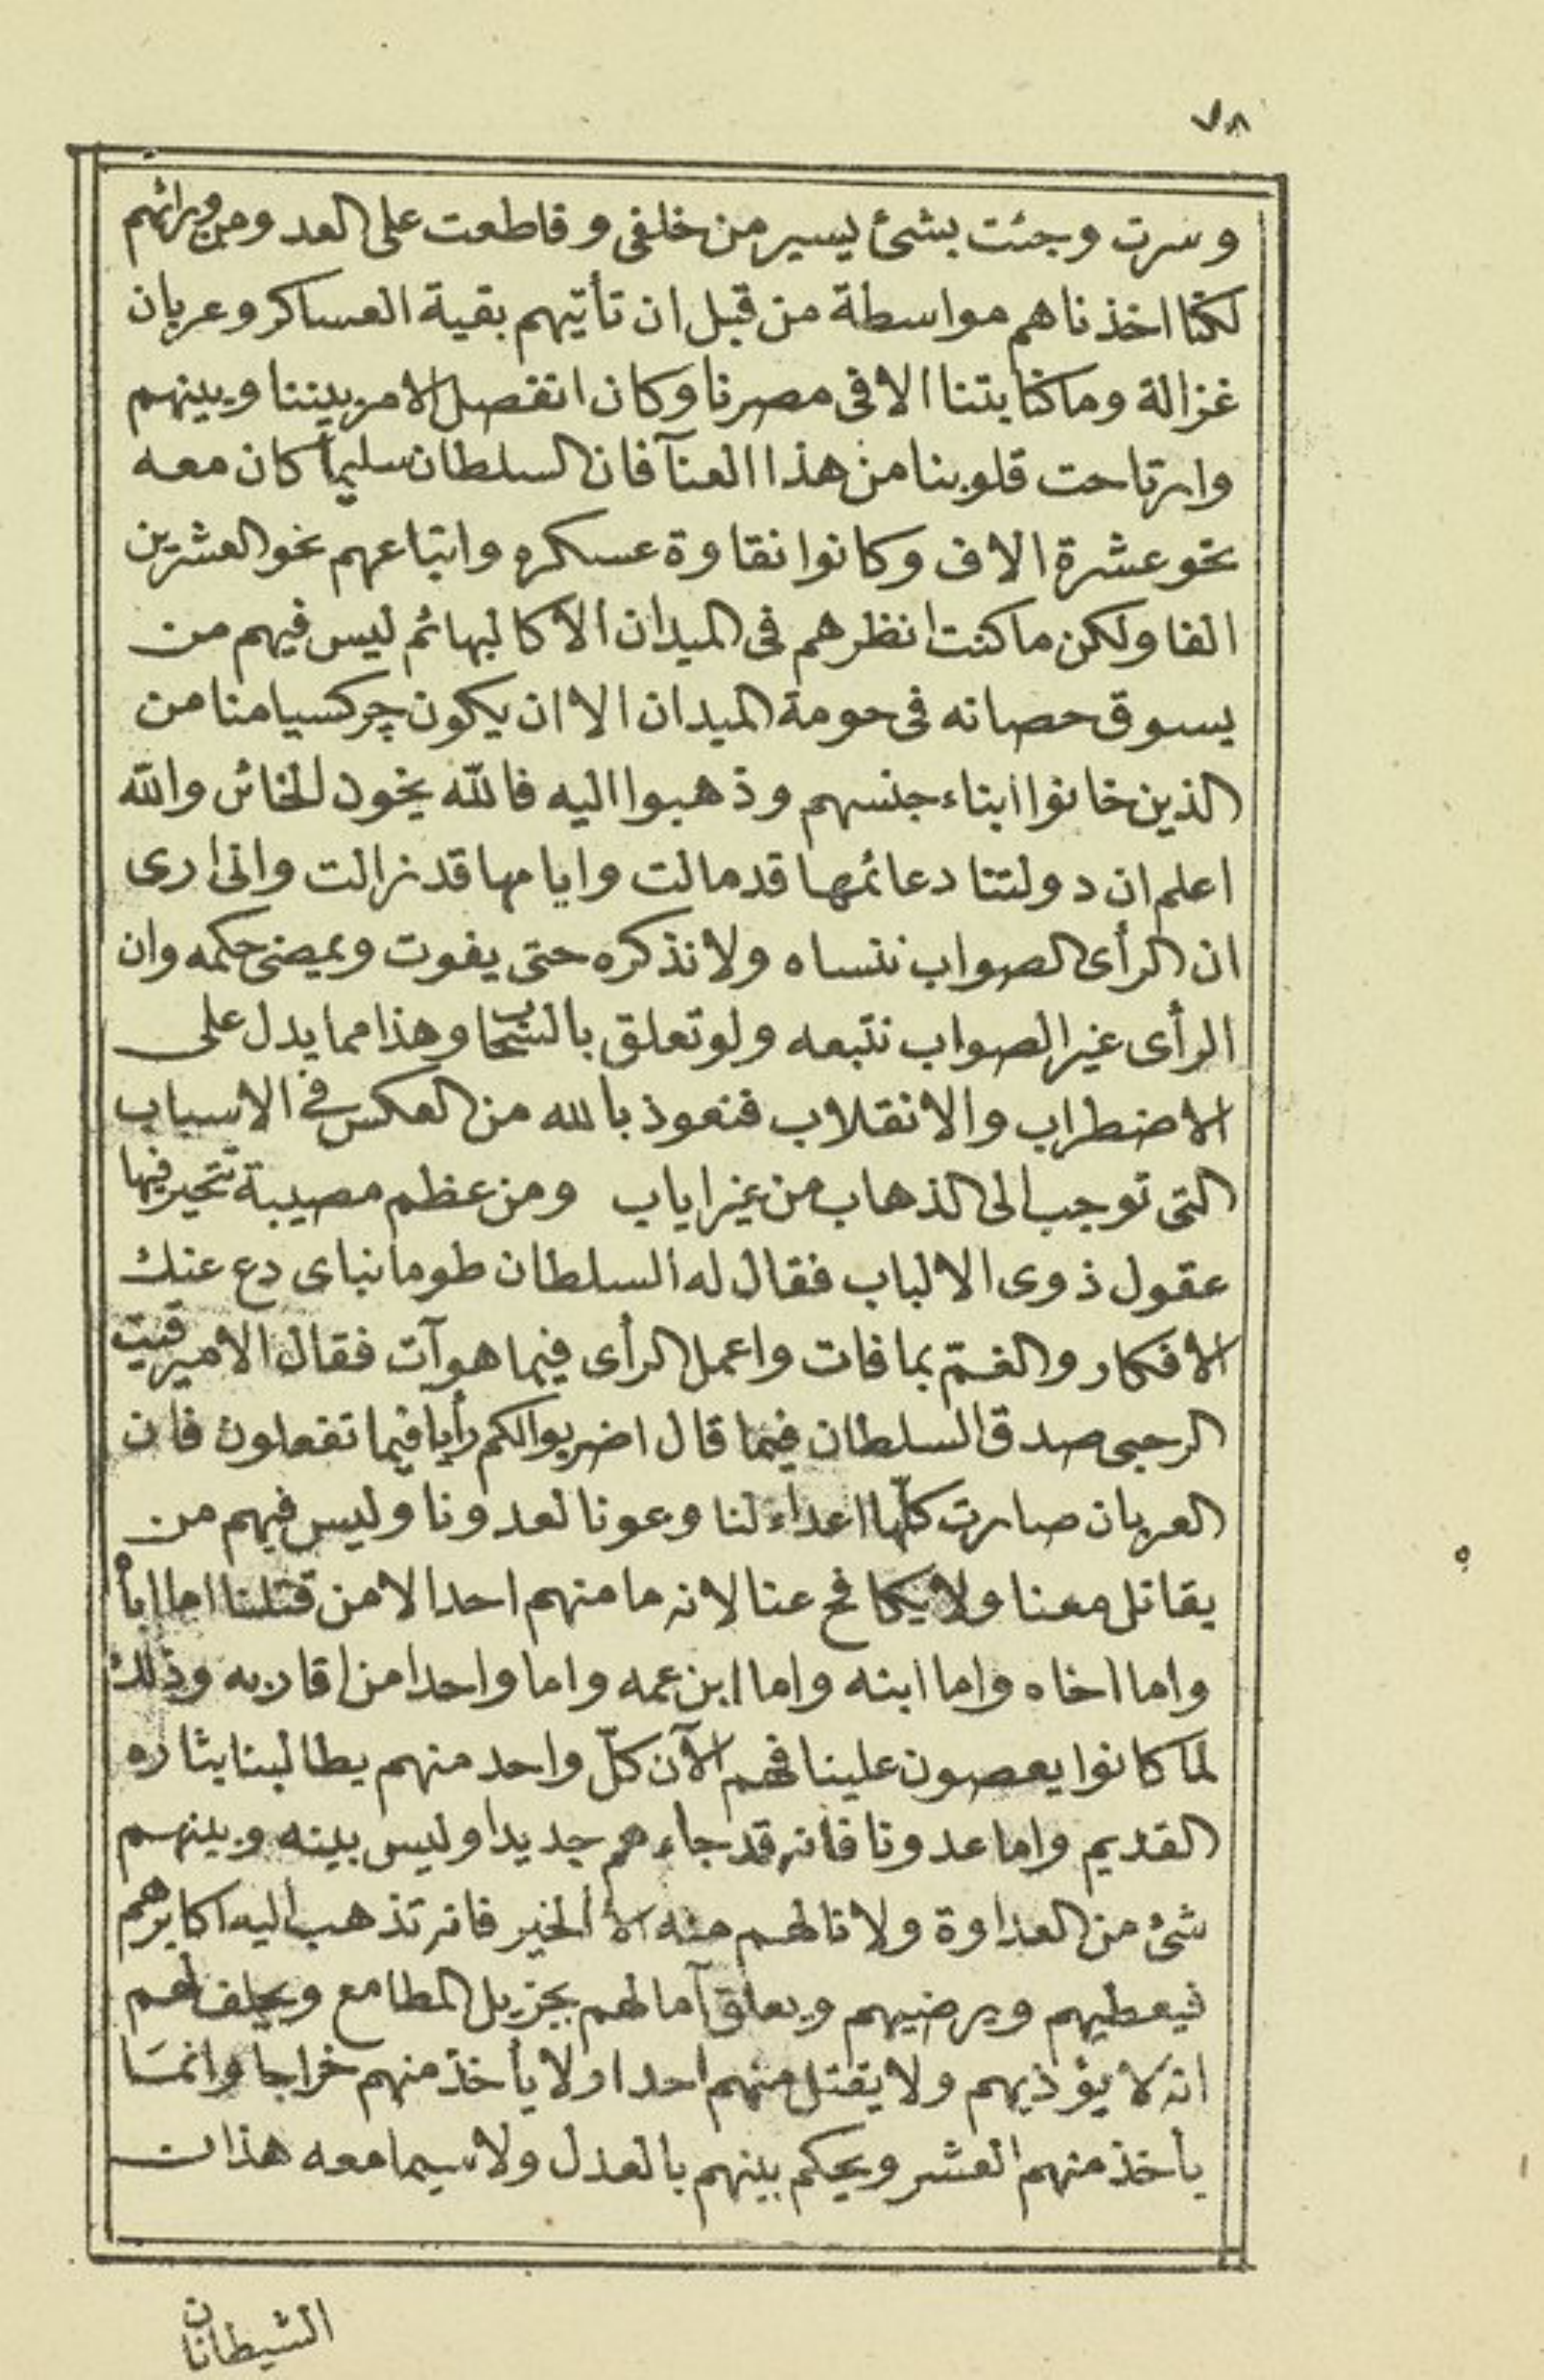 ٧٨
وسرت وجئت بشئ يسير من خلفى وقاطعت على العدو من ورائهم
لكنا اخذناهم مواسطة من قبل ان تأتيهم بقية العساكر وعربان
غزالة وما كنا بتنا الا فى مصرنا وكان انفصل الامر بيننا وبينهم
وارتاحت قلوبنا من هذا العنآ فان السلطان سليما كان معه
نحو عشرة الاف وكانوا نقاوة عسكره واتباعهم نحو العشرين
الفا ولكن ما كنت انظرهم فى الميدان الا كالبهائم ليس فيهم من
يسوق حصانه فى حومة الميدان الا ان يكون چركسيا منا من
الذين خانوا ابناء جنسهم وذهبوا اليه فالله يخون الخائن والله
اعلم ان دولتنا دعائمها قد مالت وايامها قد زالت وانى ارى
ان الرأى الصواب ننساه ولا نذكره حتى يفوت ويمضى حكمه وان
الرأى غير الصواب نتبعه ولو تعلق بالسحاب وهذا مما يدل على
الاضطراب والانقلاب فنعوذ بالله من العكس فى الاسباب
التى توجب الى الذهاب من غير اياب ومن عظم مصيبة تتحير فيها
عقول ذوى الالباب فقال له السلطان طومانباى دع عنك
الافكار والغمّ بما فات واعمل الرأى فيما هو آت فقال الامير قيت
الرحبى صدق السلطان فيما قال اضربوا لكم رأيا فيما تفعلون فان
العربان صارت كلّها اعداء لنا وعونا لعدونا وليس فيهم من
يقاتل معنا ولا يكافح عنا لانه ما منهم احدا الا من قتلنا اما اباه
واما اخاه واما ابنه واما ابن عمه واما واحدا من اقاربه وذلك
لما كانوا يعصون علينا فهم الآن كلّ واحد منهم يطالبنا بثاره
القديم واما عدونا فانه قد جاءهم جديدا وليس بينه وبينهم
شئ من العداوة ولا نالهم منه الا الخير فانه تذهب اليه اكابرهم
فيعطيهم ويرضيهم ويعلق آمالهم بجزيل المطامع ويحلف لهم
انه لا يؤذيهم ولا يقتل منهم احدا ولا يأخذ منهم خراجا وانما
يأخذ منهم العشر ويحكم بينهم بالعدل ولاسيما معه هذان
الشيطانان